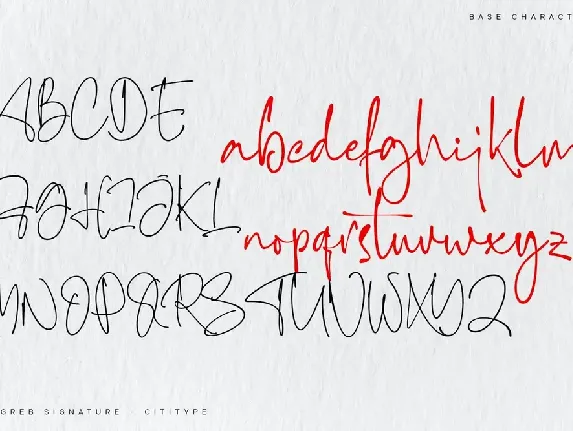 BASE CHARACT
ABCDE
abcdefghijklm
FGHIJKL
nopqrstuvwxyz
MNOPQRSTUVWXYZ
GREB SIGNATURE - CITITYPE